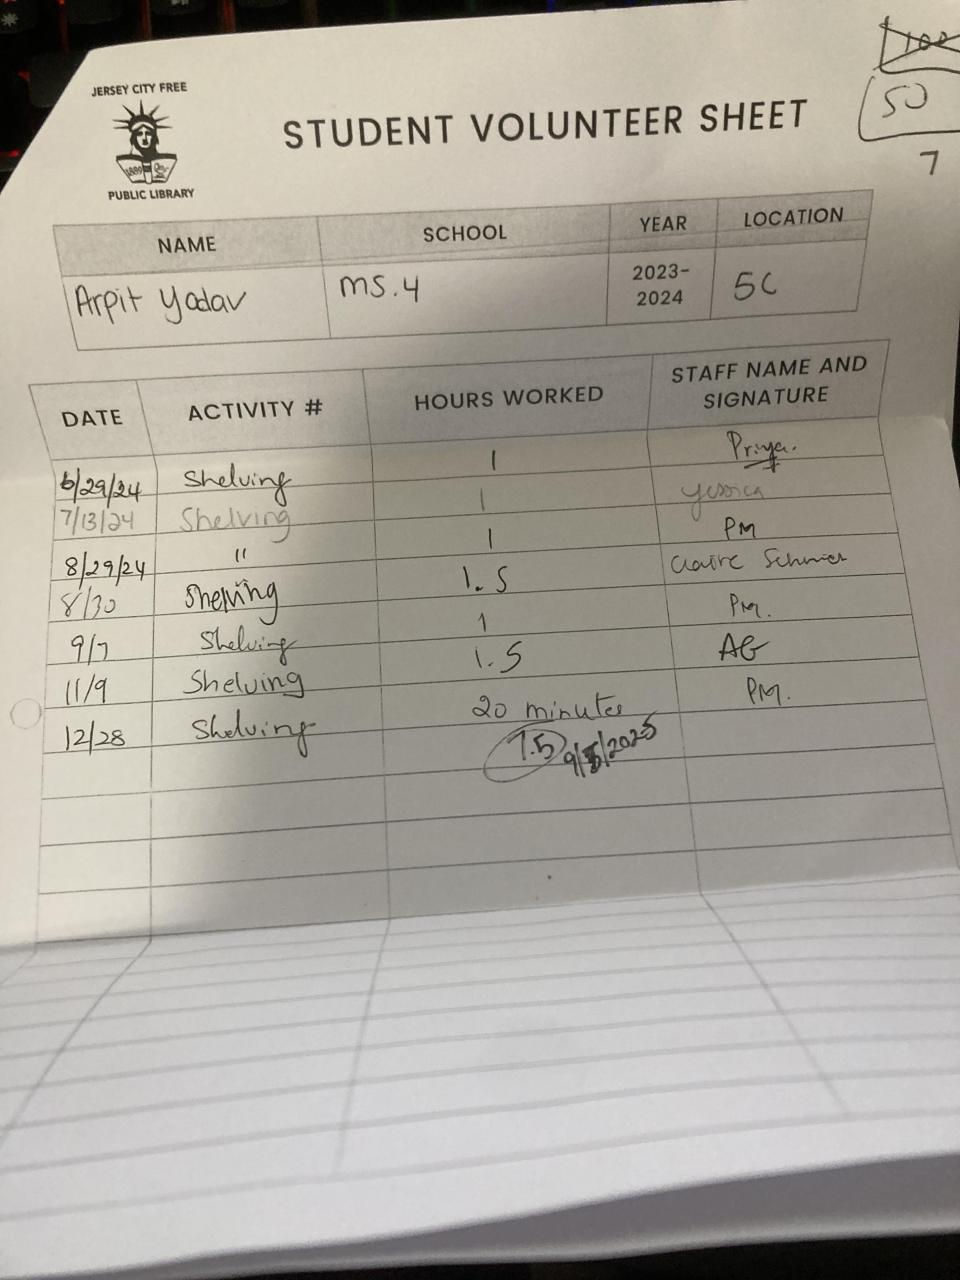 100
JERSEY CITY FREE
1889
PUBLIC LIBRARY
STUDENT VOLUNTEER SHEET
50
7
NAME SCHOOL YEAR LOCATION
Arpit Yadav MS.4 2023-2024 5C
DATE ACTIVITY # HOURS WORKED STAFF NAME AND SIGNATURE
6/29/24 Shelving 1 Priya.
7/13/24 Shelving 1 Yessica
8/29/24 " 1 PM
8/30 Shelving 1.5 Claire
9/7 Shelving 1 PM.
11/9 Shelving 1.5 AG
12/28 Shelving 20 minutes PM.
7.5 9/5/2025